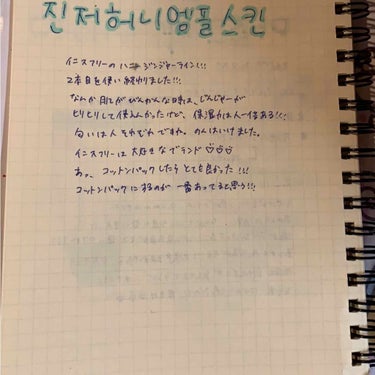 진저허니엠플스킨
イニスフリーのハニージンジャーライン!!!
2本目を使い終わりました!!!
なんか肌てがびんかんな時は、じんじゃーが
ピリピリして使えんかったけど、保湿力は人一倍ある!!
匂いは人それぞれですね。のんはいけました。
イニスフリーは大好きなブランド♡♡♡
あっ、コットンパックしたらとても良かった!!!
コットンパックにするのが一番あってると思う!!